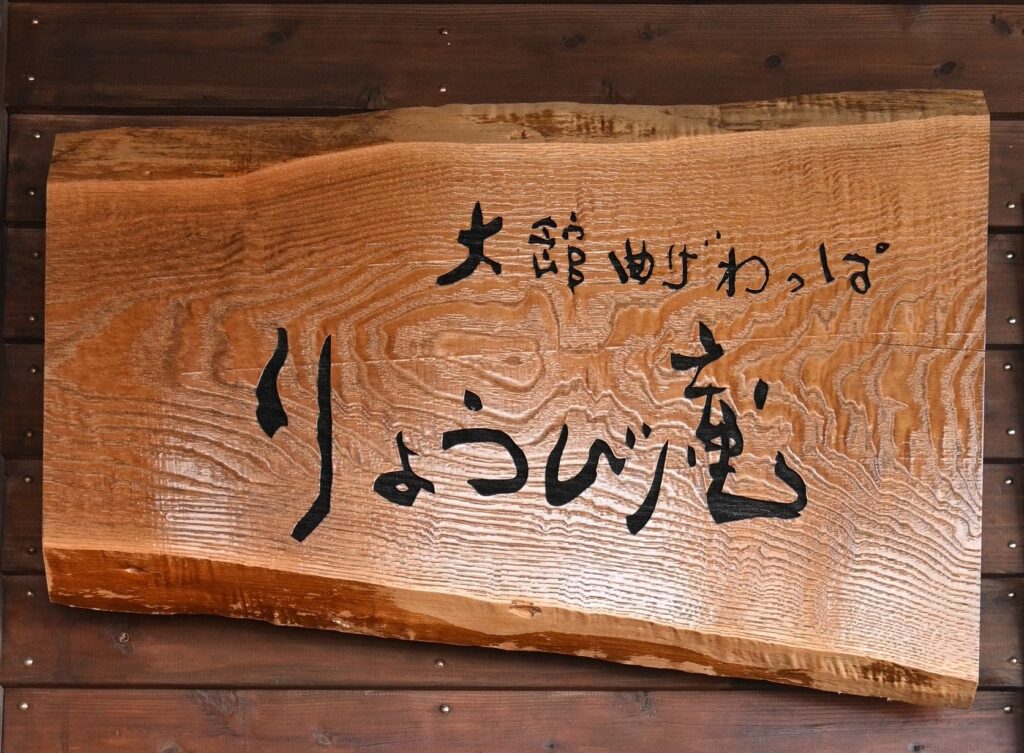 大館曲げわっぱ
りょうび庵